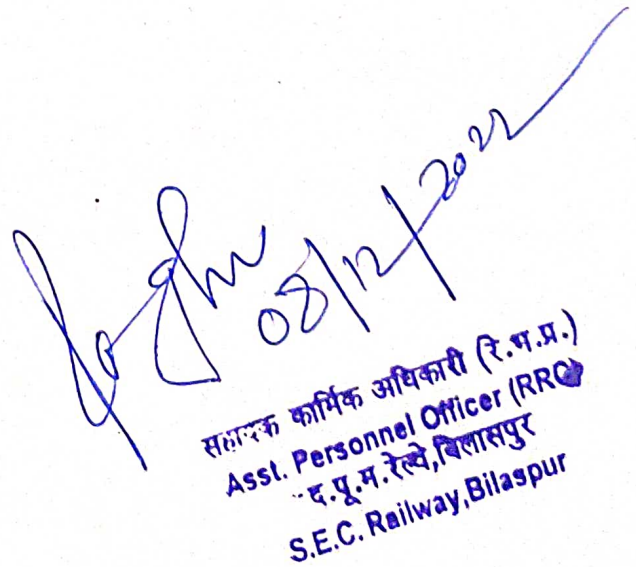 08/12/2022
सहायक कार्मिक अधिकारी (रे.भ.प्र.)
Asst. Personnel Officer (RRC)
द.पू.म.रेल्वे,बिलासपुर
S.E.C. Railway,Bilaspur